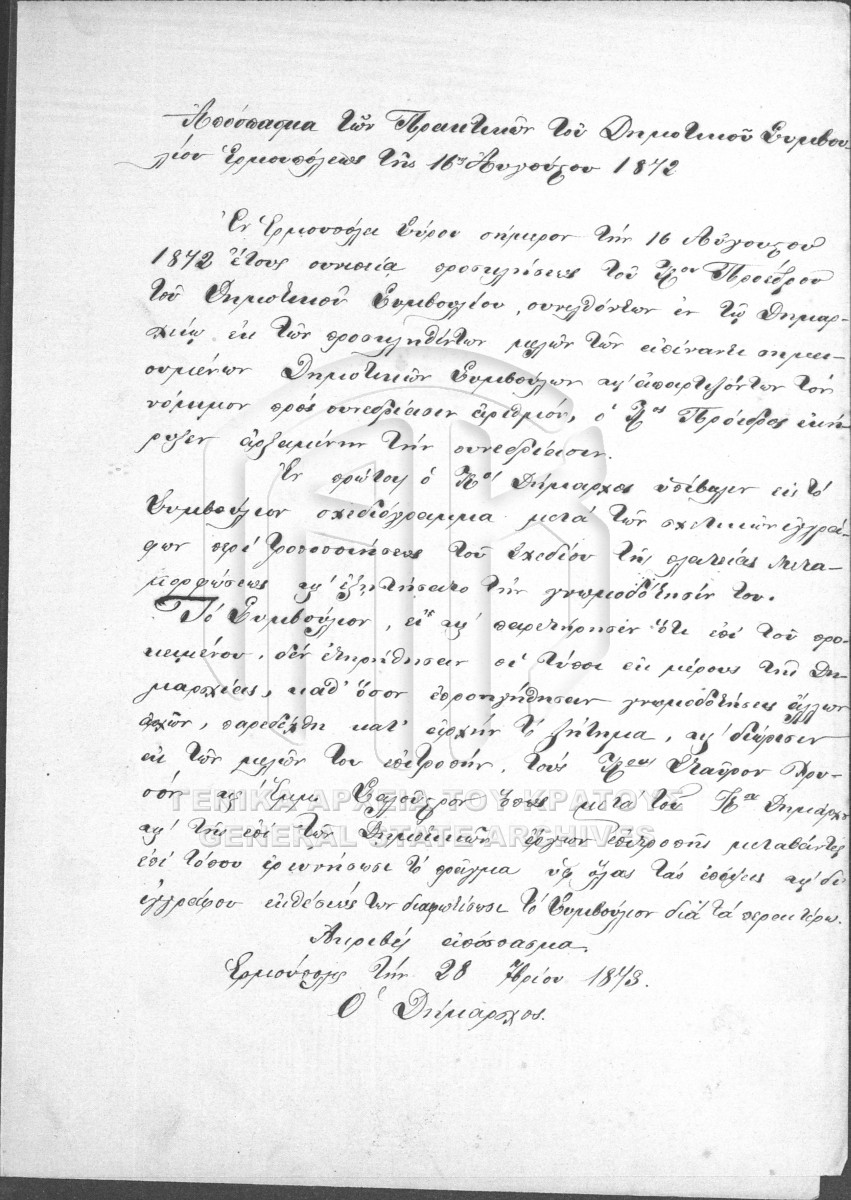 Ἀπόσπασμα τῶν Πρακτικῶν τοῦ Δημοτικοῦ Συμβου-
λίου Ἑρμουπόλεως τῆς 16ης Αὐγούστου 1872
Ἐν Ἑρμουπόλει Σύρου σήμερον τὴν 16 Αὐγούστου
1872 ἔτους συνεπείᾳ προσκλήσεως τοῦ Κου Προέδρου
τοῦ Δημοτικοῦ Συμβουλίου, συνελθόντων ἐν τῷ Δημαρ-
χείῳ ἐκ τῶν προσκληθέντων μελῶν τῶν ἀπέναντι σημει-
ουμένων Δημοτικῶν Συμβούλων κ' ἀπαρτιζόντων τὸν
νόμιμον πρὸς συνεδρίασιν ἀριθμόν, ὁ Κος Πρόεδρος ἐκή-
ρυξεν ἀρξαμένην τὴν συνεδρίασιν.
Ἐν πρώτοις ὁ Κος Δήμαρχος ὑπέβαλεν εἰς τὸ
Συμβούλιον σχεδιόγραμμα μετὰ τῶν σχετικῶν ἐγγρά-
φων περὶ τροποποιήσεως τοῦ Σχεδίου τῆς πλατείας Μετα-
μορφώσεως κ' ἐξῃτήσατο τὴν γνωμοδότησίν του.
Τὸ Συμβούλιον, εἰ κ' παρετήρησεν ὅτι ἐπὶ τοῦ προ-
κειμένου, δὲν ἐτηρήθησαν οἱ τύποι ἐκ μέρους τῆς Δη-
μαρχίας, καθ' ὅσον ἐπροηγήθησαν γνωμοδοτήσεις ἄλλων
ἀρχῶν, παρεδέχθη κατ' ἀρχὴν τὸ ζήτημα, κ' διώρισεν
ἐκ τῶν μελῶν του ἐπιτροπὴν, τοὺς Κους Σταῦρον Χρυ-
σὸν κ' Ἐμμ. Σαλούστρον ὅπως μετὰ τοῦ Κου Δημάρχου
κ' τῆς ἐπὶ τῶν Δημοτικῶν ἔργων ἐπιτροπῆς μεταβάντες
ἐπὶ τόπου ἐρευνήσωσι τὸ πρᾶγμα ὑφ' ὅλας τὰς ἐπόψεις κ' δι'
ἐγγράφου ἐκθέσεώς των διαφωτίσωσι τὸ Συμβούλιον διὰ τὰ περαιτέρω.
Ἀκριβὲς ἀπόσπασμα
Ἑρμούπολις τὴν 28 7βρίου 1873.
Ὁ Δήμαρχος.
ΓΕΝΙΚΑ ΑΡΧΕΙΑ ΤΟΥ ΚΡΑΤΟΥΣ
GENERAL STATE ARCHIVES